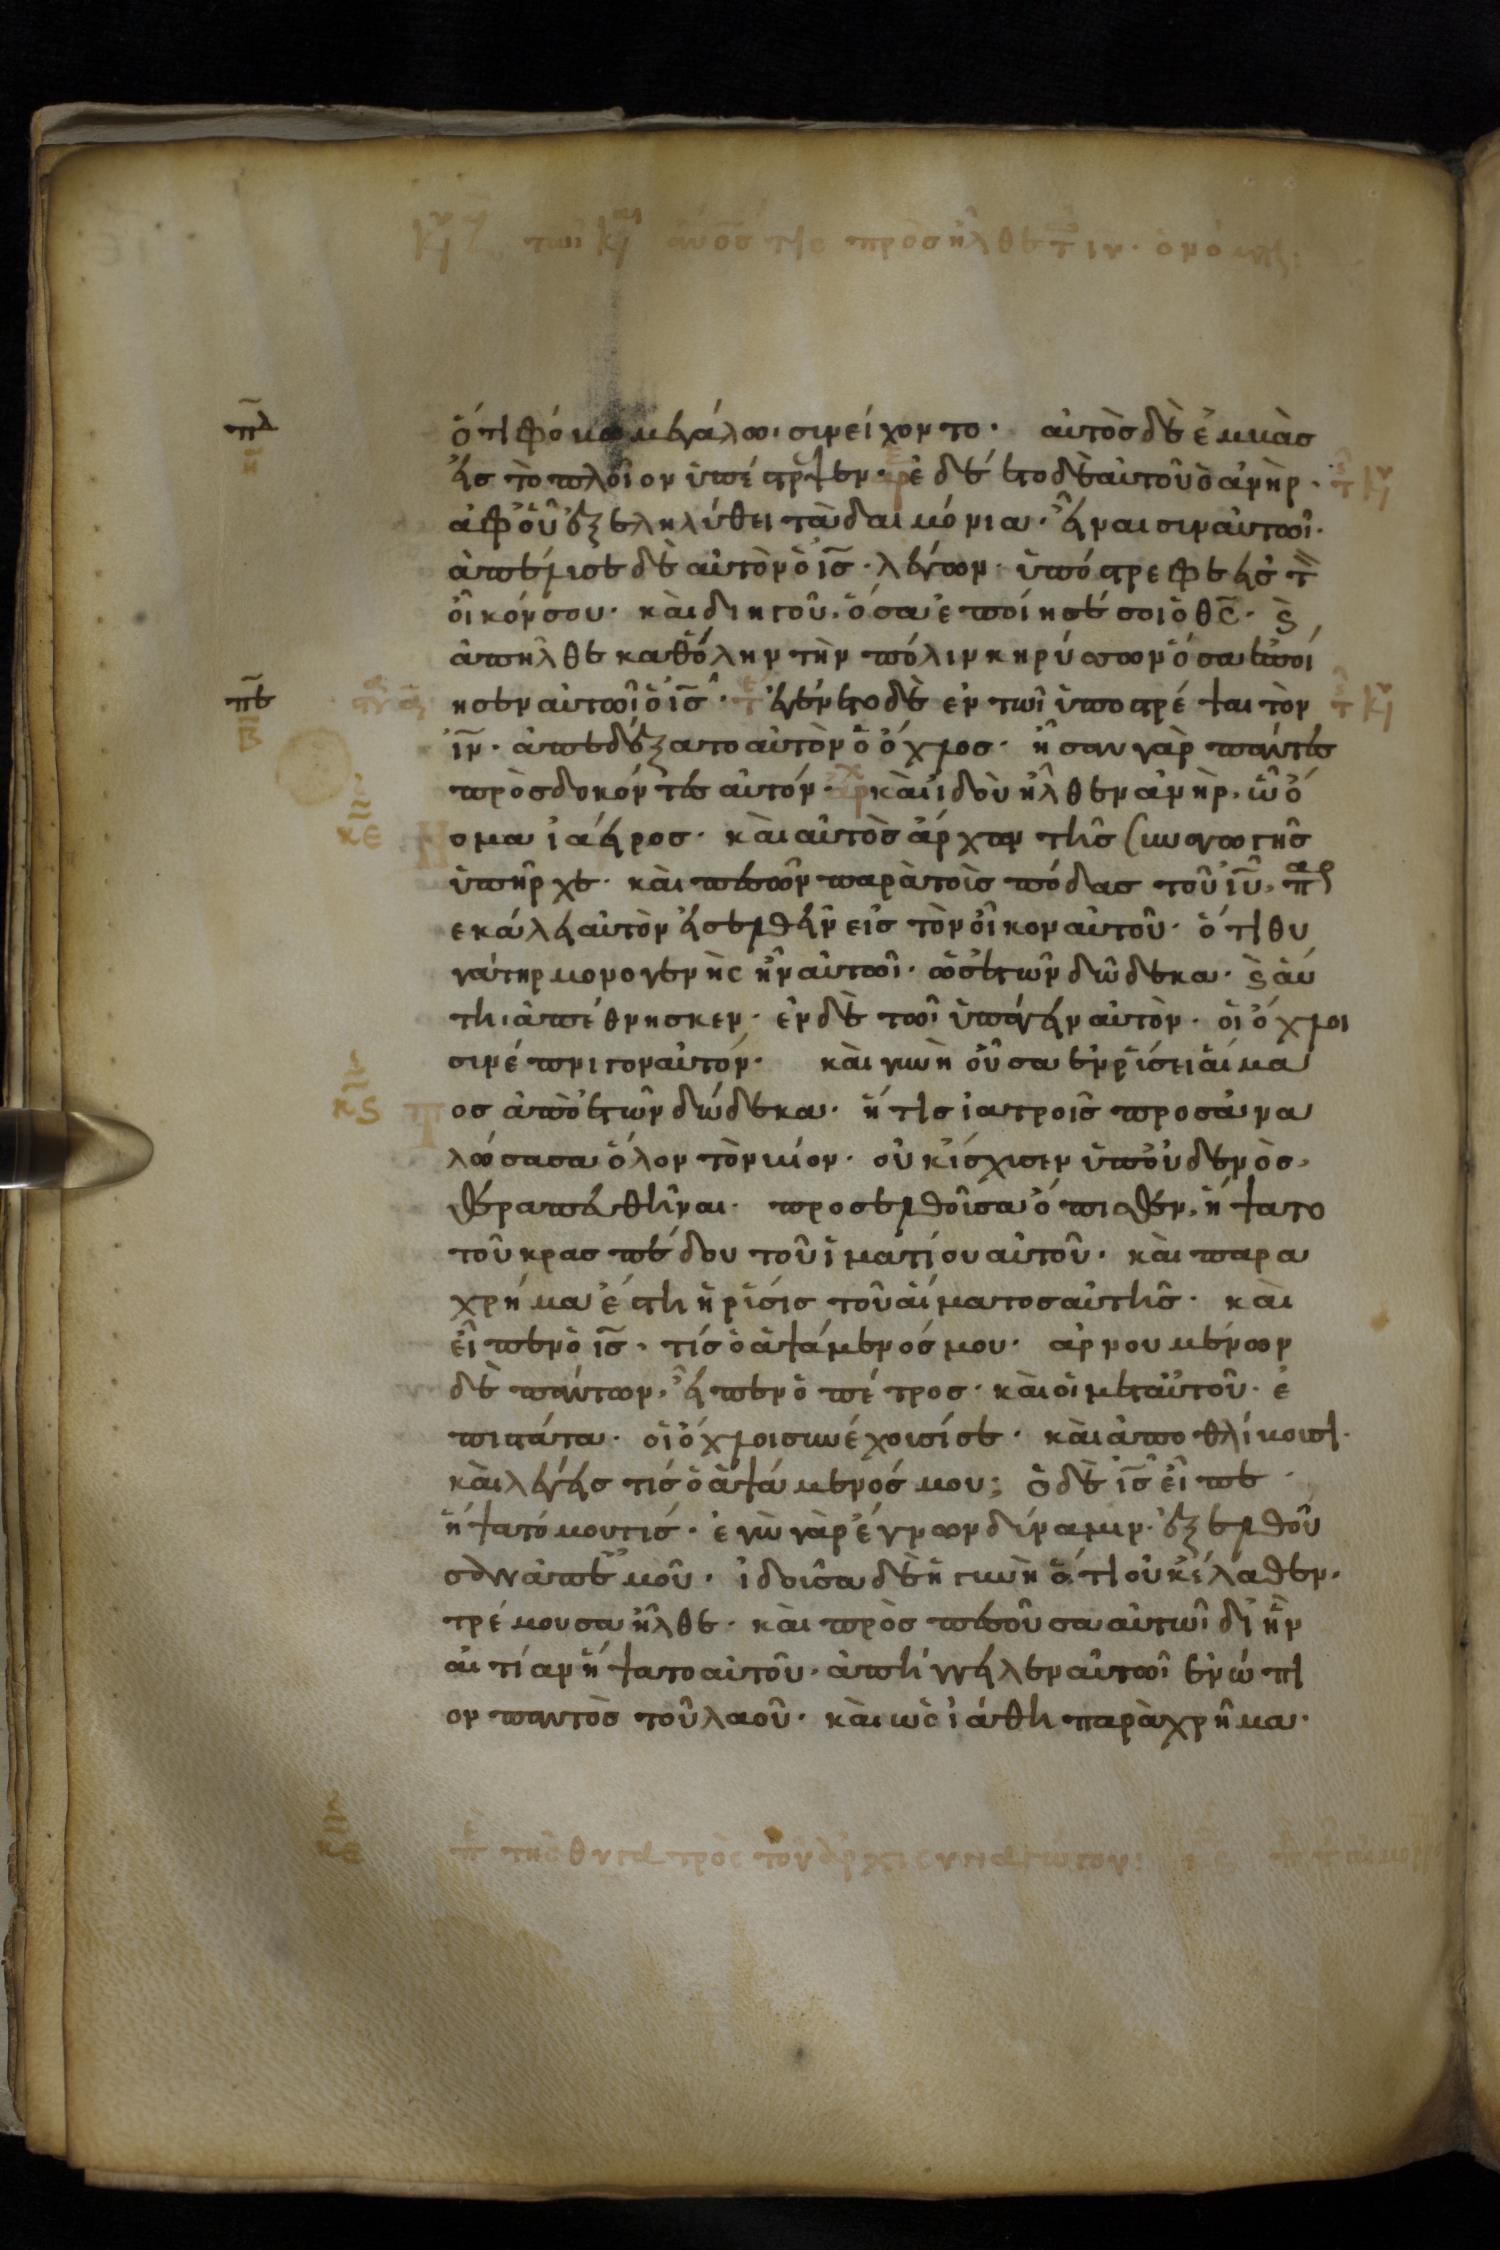 τῶι κ αυοσ της προσηλθε τ ιν · ὁνόματι
πδ ὅτι φόβω μεγάλω· συνείχοντο· αυτὸσ δὲ ἐμβὰσ
η εισ τὸ πλοῖον ὑπέστρεψεν · ἐδέετο δὲ αὐτοῦ ὁ ἀνὴρ ·
ἀφ οὗ ἐξεληλύθει τὰ δαιμόνια · εἶναι σὺν αὐτωῖ·
ἀπέλυσε δὲ αὐτὸν ὁ ις̄ · λέγων · ὑπόστρεφε εἰσ τ̄
οἶκόν σου · καὶ διηγοῦ· ὅσα ἐποίησέ σοι ὁ θς̄ · ϗ
ἀπῆλθε καθ ὅλην τὴν πόλιν κηρύσσων ὅσα ἐποί
πε ησεν αὐτωῖ ὁ ις̄ · ἐγένετο δὲ ἐν τωῖ ὑποστρέψαι τὸν
β ιν̄ · ἀπεδέξατο αὐτὸν ὁ ὄχλοσ · ἦσαν γὰρ πάντεσ
πρὸσδοκόντεσ αὐτόν · καὶ ἰδοὺ ἦλθεν ἀνὴρ · ὧ ὄ
κε ομα ἰάειροσ · καὶ αὐτὸσ ἄρχων τῆσ συναγωγῆσ
ὑπῆρχε · καὶ πεσὼν παρὰ τοὺσ πόδασ τοῦ ιῡ · παρ
εκάλει αὐτὸν εἰσελθεῖν εἰσ τὸν οἶκον αὐτοῦ · ὅτι θυ
γάτηρ μονογενὴς ἦν αὐτωῖ · ὡσ ἐτῶν δώδεκα · ϗ αὐ
τὴ· ἀπέθνησκεν · ἐν δὲ τωῖ ὑπάγειν αὐτὸν · οἱ ὄχλοι
συνέπνιγον αὐτόν · καὶ γυνὴ οὖσα ἐν ῥύσει αἵμα
κς τοσ ἀπὸ ἐτῶν δώδεκα · ἥτισ ἰατροῖσ προσανα
λώσασα ὅλον τὸν βίον · οὐκ ἴσχυσεν ὑπ οὐδενὸσ ·
θεραπευθῆναι · προσελθοῦσα ὄπισθεν · ἥψατο
τοῦ κρασπέδου τοῦ ἱματίου αὐτοῦ · καὶ παρα
χρῆμα ἔστη ἡ ῥύσισ τοῦ αἵματοσ αὐτῆσ · καὶ
εἶπεν ὁ ις̄ · τίσ ὁ ἁψάμενόσ μου · ἀρνουμένων
δὲ πάντων · εἶπεν ὁ πέτροσ · καὶ οἱ μετ αὐτοῦ · ἐ
πιστάτα · οἱ ὄχλοι συνέχουσί σε · καὶ ἀποθλίβουσι·
καὶ λέγεισ τίσ ὁ ἁψάμενόσ μου ; ὁ δὲ ις̄ εἶπε ·
ἥψατό μου τισ · ἐγὼ γὰρ ἔγνων δύναμιν · ἐξελθοῦ
σαν ἀπ ἐμοῦ · ἰδοῦσα δὲ ἡ γυνὴ ὅτι οὐκ ἔλαθεν ·
τρέμουσα ἦλθε · καὶ πρὸσ πεσοῦσα αὐτωῖ δι ἣν
αἰτίαν ἥψατο αὐτοῦ · ἀπήγγειλεν αὐτωῖ ἐνώπι
ον παντὸσ τοῦ λαοῦ · καὶ ὡς ἰάθη παρὰχρῆμα ·
κε π τῆς θυγατρὸς τοῦ ἀρχισυναγώγου :